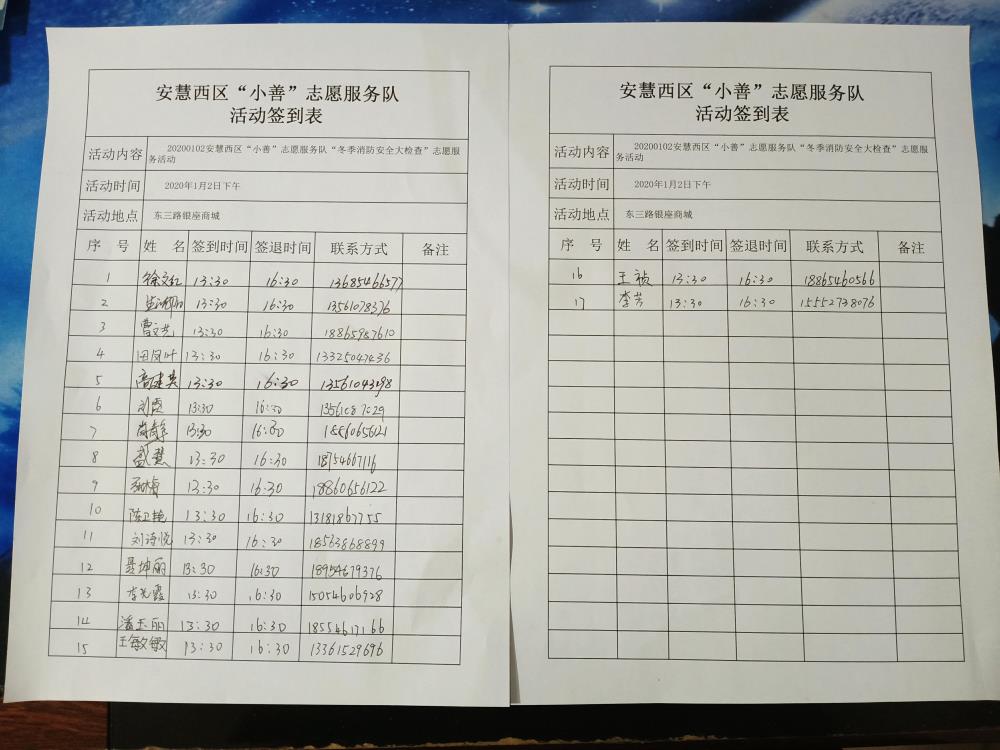 安慧西区“小善”志愿服务队
活动签到表
活动内容 20200102安慧西区“小善”志愿服务队“冬季消防安全大检查”志愿服
务活动
活动时间 2020年1月2日下午
活动地点 东三路银座商城
序 号 姓 名 签到时间 签退时间 联系方式 备注
1 徐文红 13:30 16:30 13685466577
2 13:30 16:30 13561078376
3 曹文先 13:30 16:30 18865987610
4 田凤叶 13:30 16:30 13325047436
5 高建英 13:30 16:30 13561043298
6 刘霞 13:30 16:30 13561087029
7 尚静 13:30 16:30
8 盛慧 13:30 16:30 18754667116
9 13:30 16:30 18860656122
10 陈卫艳 13:30 16:30 13181867755
11 刘诗悦 13:30 16:30 18563868899
12 聂坤丽 13:30 16:30 18954679376
13 李光霞 13:30 16:30 15054606928
14 潘玉丽 13:30 16:30
15 王敏敏 13:30 16:30 13361529696
安慧西区“小善”志愿服务队
活动签到表
活动内容 20200102安慧西区“小善”志愿服务队“冬季消防安全大检查”志愿服
务活动
活动时间 2020年1月2日下午
活动地点 东三路银座商城
序 号 姓 名 签到时间 签退时间 联系方式 备注
16 王祯 13:30 16:30 18865460566
17 李芳 13:30 16:30 15552738076